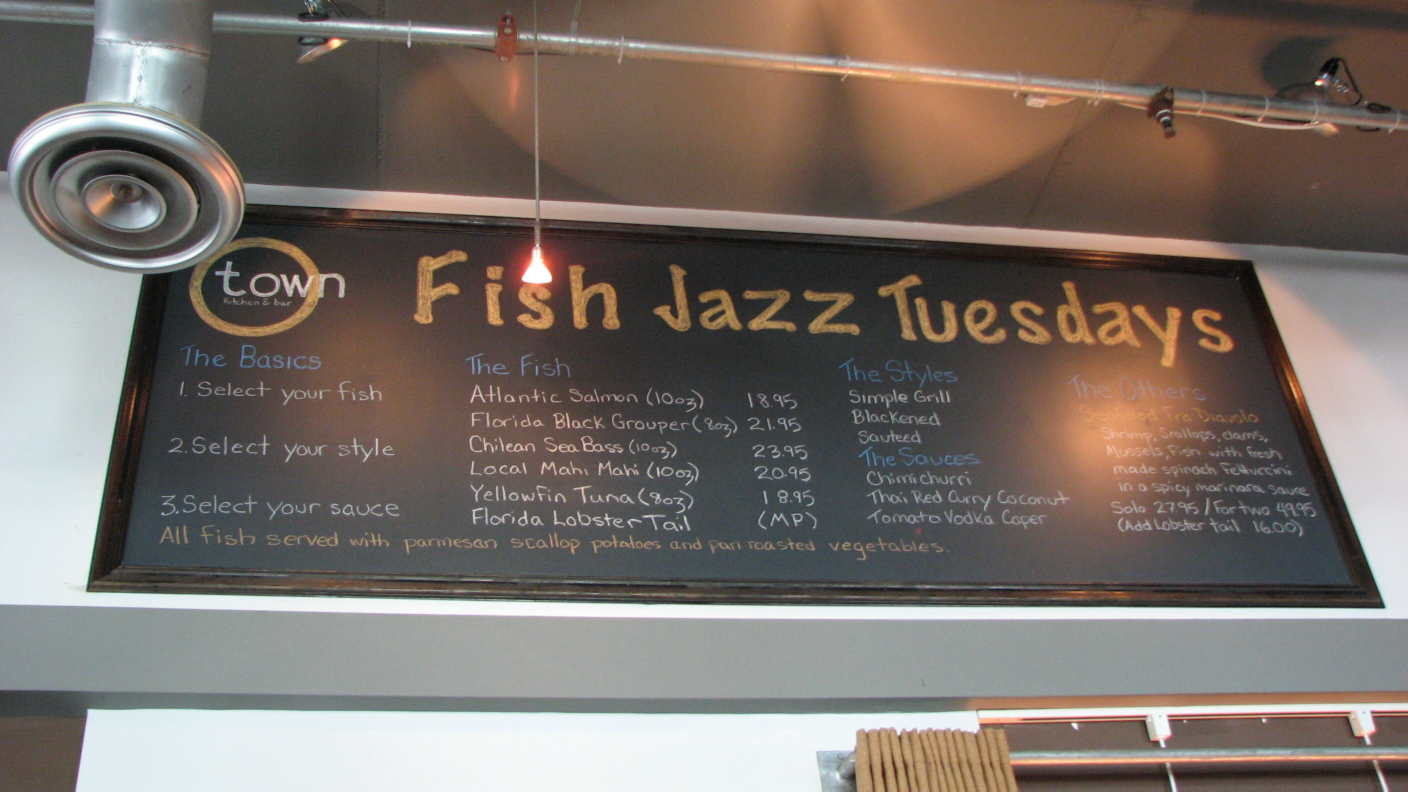 town
Kitchen & bar
Fish Jazz Tuesdays
The Basics
1. Select your fish
2. Select your style
3. Select your sauce
The Fish
Atlantic Salmon (10oz) 18.95
Florida Black Grouper (8oz) 21.95
Chilean Sea Bass (10oz) 23.95
Local Mahi Mahi (10oz) 20.95
Yellowfin Tuna (8oz) 18.95
Florida Lobster Tail (MP)
The Styles
Simple Grill
Blackened
Sauteed
The Sauces
Chimichurri
Thai Red Curry Coconut
Tomato Vodka Caper
The Others
Fra Diavolo
Shrimp, Scallops, clams,
Mussels, Fish with fresh
made spinach Fettuccini
in a spicy marinara sauce
Solo 27.95 / For two 49.95
(Add Lobster tail 16.00)
All fish served with parmesan scallop potatoes and pan roasted vegetables.